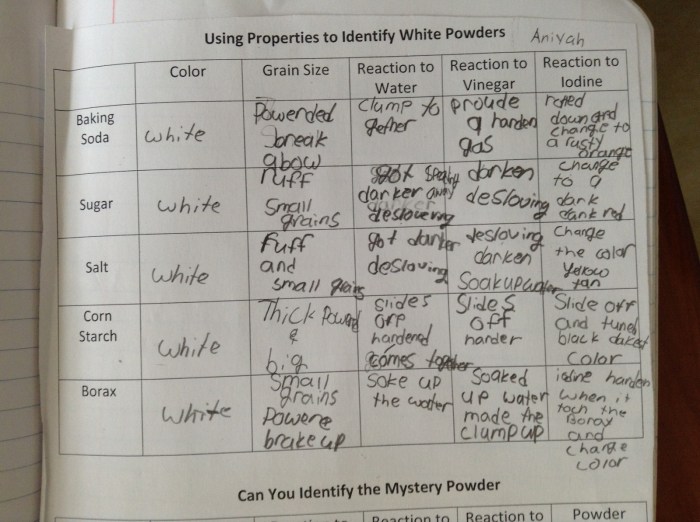 Using Properties to Identify White Powders Aniyah
Color
Grain Size
Reaction to
Water
Reaction to
Vinegar
Reaction to
Iodine
Baking
Soda
white
Powerded
break
abow
Clump to
gether
proude
a harden
gas
down and
change to
a rusty
orange
Sugar
white
ruff
small
grains
got
darker away
deslovering
darken
desloving
change
to a
dark
dank red
Salt
white
fuff
and
small grains
got darker
desloving
desloving
darken
Soak up water
Change
the color
Yellow
tan
Corn
Starch
white
Thick Powerd
&
big
slides
off
hardened
comes together
Slides
off
harder
Slide off
and tuned
black
color
Borax
white
Small
grains
Powere
brake up
Soke up
the water
Soaked
up water
made the
clump up
iodine harden
when it
toch the
Boray
and
change
color
Can You Identify the Mystery Powder
Reaction to
Reaction to
Powder